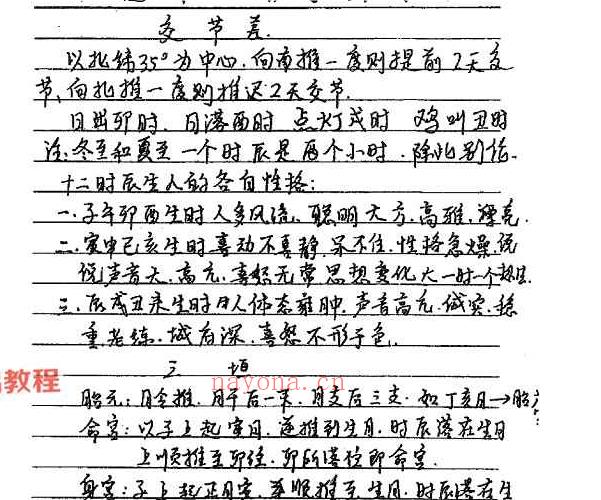 交节差.
以北纬35°为中心.向南推一度则提前2天交
节、向北推一度则推迟2天交节.
日出卯时、日落酉时 点灯戌时 鸡叫丑时
注:冬至和夏至一个时辰是两个小时.除此别信.
十二时辰生人的各自性格:
一.子午卯酉生时人多风流、聪明大方.高雅、漂亮.
二.寅申巳亥生时喜动不喜静.呆不住.性格急燥.说
说声音大、高亢.喜怒无常思想变化大一时一个
三.辰戌丑未生时日人体态雍肿.声音高亢.诚实.稳
重老练.城府深.喜怒不形于色.
三垣
易教程
nayona.cn
胎元:月令推.月干后一宗.月支后三支.如丁亥月→胎
命宫:以子上起寅月.逆推到生月.时辰落在生月
上顺推至卯经.卯所落位即命宫.
身宫:子上起正月寅.顺推至生月.时辰落在生